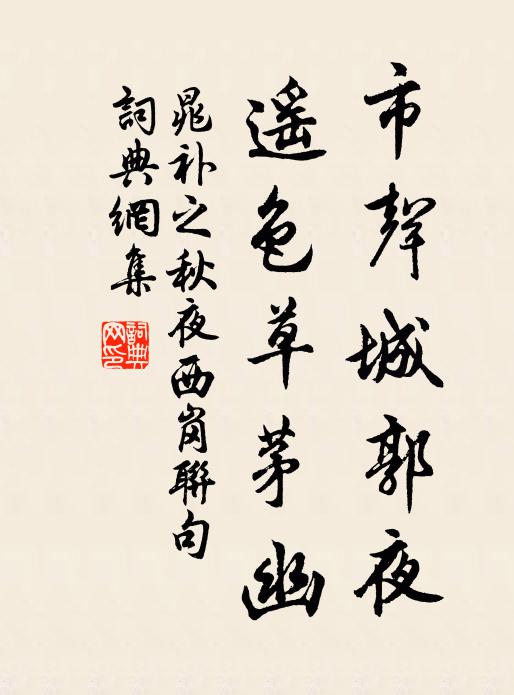 市聲城郭夜
遥色草茅幽
晁补之秋夜西崗聯句
詞典網集
詞典
网印